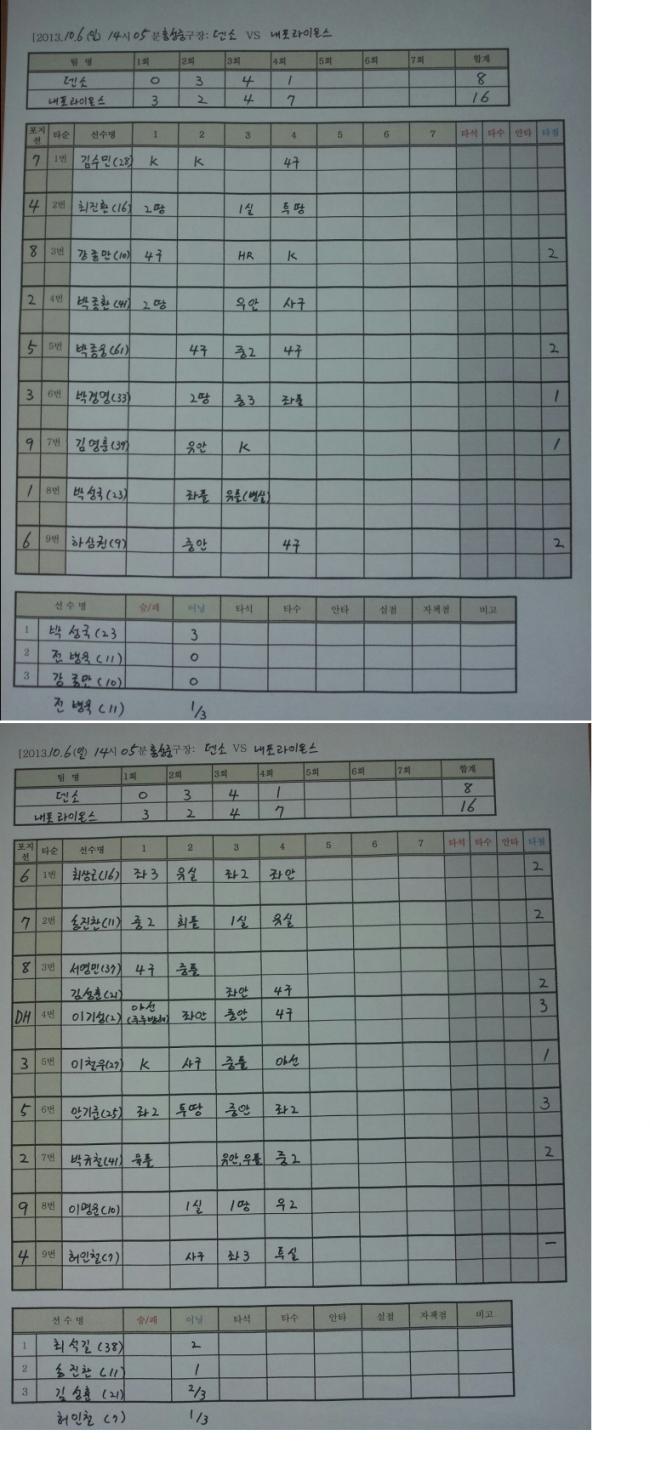 [2013.10.6(일) 14시 05분 홍성중구장: 덴소 VS 내포라이온스
팀 명 1회 2회 3회 4회 5회 6회 7회 합계
덴소 0 3 4 1 8
내포라이온스 3 2 4 7 16
포지션 타순 선수명 1 2 3 4 5 6 7 타석 타수 안타 타점
7 1번 김수민(28) K K 4구
4 2번 최진환(16) 2땅 1실 투땅
8 3번 강률만(10) 4구 HR K 2
2 4번 박종환(41) 2땅 우안 사구
5 5번 박종웅(61) 4구 중2 4구 2
3 6번 박정명(33) 2땅 중3 좌플 1
9 7번 김명훈(39) 유안 K 1
1 8번 박성국(23) 좌플 유플(병살)
6 9번 하삼권(9) 중안 4구 2
선수명 승/패 이닝 타석 타수 안타 실점 자책점 비고
1 박성국(23 3
2 전병욱(11) 0
3 강률만(10) 0
전병욱(11) 1/3
[2013.10.6(일) 14시 05분 홍성중구장: 덴소 VS 내포라이온스
팀 명 1회 2회 3회 4회 5회 6회 7회 합계
덴소 0 3 4 1 8
내포라이온스 3 2 4 7 16
포지션 타순 선수명 1 2 3 4 5 6 7 타석 타수 안타 타점
6 1번 최상근(16) 좌3 유실 좌2 좌안 2
7 2번 송진찬(11) 중2 희플 1실 유실 2
8 3번 서영민(37) 4구 중플
김성훈(21) 좌안 4구 2
DH 4번 이기성(2) 야선 좌안 중안 4구 3
3 5번 이철우(27) K 사구 중플 야선 1
5 6번 안기준(25) 좌2 투땅 중안 좌2 3
2 7번 박규철(41) 유플 유안,우플 중2 2
9 8번 이명운(10) 1실 1땅 우2
4 9번 허인철(7) 사구 좌3 투실 -
선수명 승/패 이닝 타석 타수 안타 실점 자책점 비고
1 최석길(38) 2
2 송진찬(11) 1
3 김성훈(21) 2/3
허인철(7) 1/3